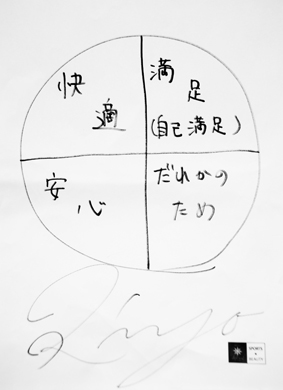 快
適
満
足
(自己満足)
安
心
だれかの
ため
SPORTS